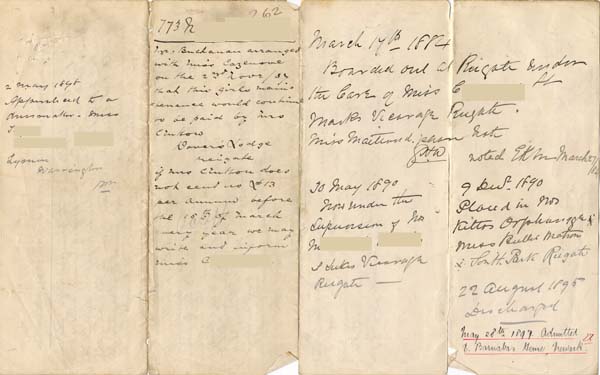 2 May 1898
Apprenticed to a
dressmaker. Miss
Lymm
Warrington
773 N
262
Mrs Buchanan arranged
with Miss Cazenove
on the 23rd
that this girls main
would continue
to be paid by Mrs
Reigate
if Mrs does
not send us £13
per annum before
the 15th of March
every year we may
write and inform
Miss C
March 17th 1884
Boarded out at Reigate under
the Care of Miss C
Marks Vicarage Reigate.
Miss Maitland
noted March
30 May 1890
Now under the
Supervision of Mrs
M
S Lukes Vicarage
Reigate —
9 Decr. 1890
Placed in Mrs
Kittos Orphanage
Miss Matron
South Park Reigate
22 August 1895
Discharged
May 28th 1897 Admitted
S. Barnabas Home,